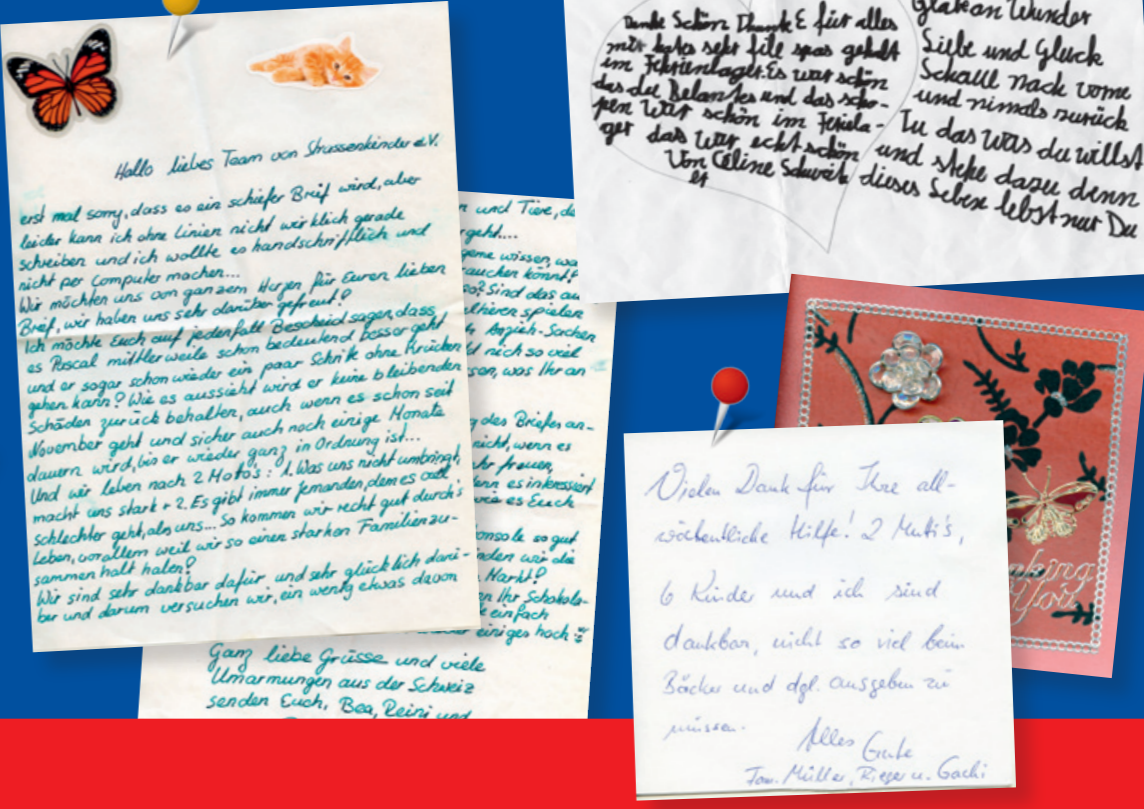 Hallo liebes Team von Strassenkinder e.V.
erst mal sorry, dass es ein schiefer Brief wird, aber
leider kann ich ohne Linien nicht wirklich gerade
schreiben und ich wollte es handschriftlich und
nicht per Computer machen...
Wir möchten uns von ganzem Herzen für Euren lieben
Brief, wir haben uns sehr darüber gefreut!
Ich möchte Euch auf jedenfall Bescheid sagen, dass
es Pascal mittlerweile schon bedeutend besser geht
und er sogar schon wieder ein paar Schritte ohne Krücken
gehen kann! Wie es aussieht wird er keine bleibenden
Schäden zurück behalten, auch wenn es schon seit
November geht und sicher auch noch einige Monate
dauern wird, bis er wieder ganz in Ordnung ist...
Und wir leben nach 2 Motto's: 1. Was uns nicht umbringt,
macht uns stark + 2. Es gibt immer jemanden, dem es
schlechter geht, als uns... So kommen wir recht gut durch's
Leben, vorallem weil wir so einen starken Familienzu-
sammenhalt haben!
Wir sind sehr dankbar dafür und sehr glücklich darü-
ber und darum versuchen wir, ein wenig etwas davon
n und Tiere, da
geht....
gerne wissen, wa
rauchen könnt!
so? Sind das au
spielen
Anzieh-Sachen
nich so viel
sen, was Ihr an
g des Briefes an-
nicht, wenn es
freuen,
ann es interessiert
wie es Euch
onsole so gut
nden wir die
Markt?
en Ihr Schokola-
einfach
einiges hoch
Ganz liebe Grüsse und viele
Umarmungen aus der Schweiz
senden Euch, Bea, Reini und
Danke Schön Danke für alles
mir hates sehr fill spas gehabt
im Ferienlager. Es war schön
das die Belantes und das scho-
pen War schön im Feriela-
ger das War echt schön
Von Celine
Glak an Wunder
Liebe und Glück
Schaue nach vorne
und nimals zurück
Tu das was du willst
und stehe dazu denn
dieses Leben lebst nur Du
Vielen Dank für Ihre all-
wöchentliche Hilfe! 2 Mutti's,
6 Kinder und ich sind
dankbar, nicht so viel beim
Bäcker und dgl. ausgeben zu
müssen.
Alles Gute
Fam. Müller, Rieger u. Gachi
nking
You